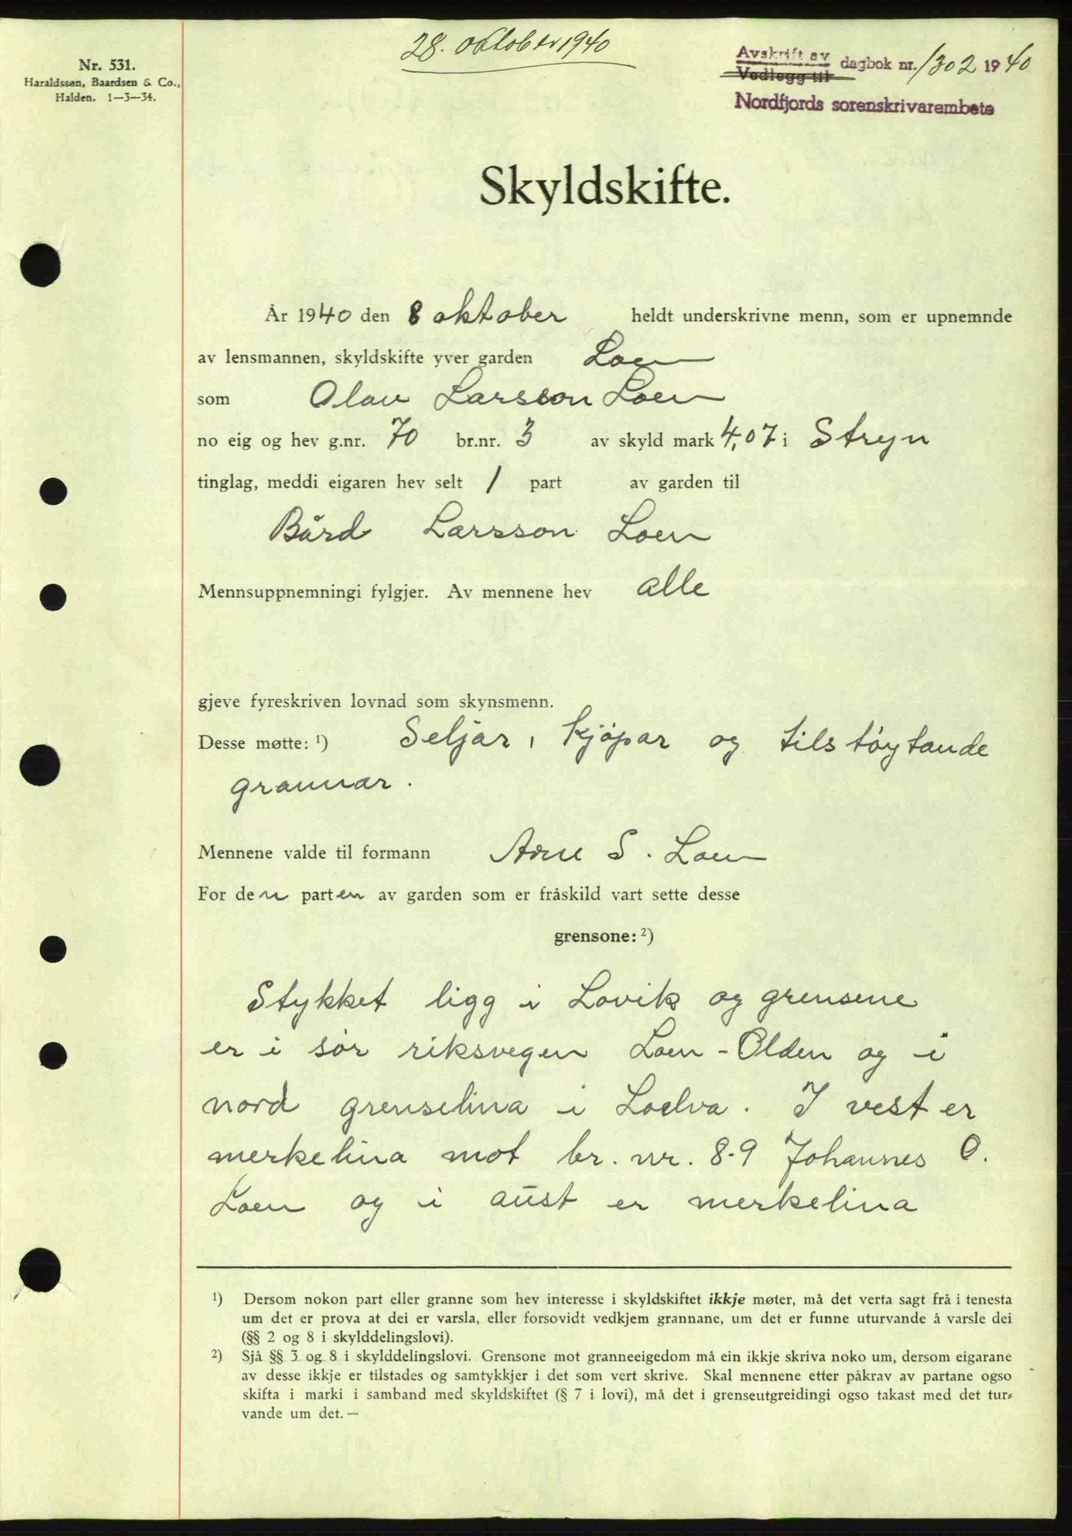 28. oktober 1940
Nr. 531.
Haraldssøn, Baardsen & Co.,
Halden. 1—3—34.
Avskrift av
Vedlegg til
dagbok nr. 1302 1940
Nordfjords sorenskrivarembete
Skyldskifte.
År 1940 den 8 oktober heldt underskrivne menn, som er upnemnde
av lensmannen, skyldskifte yver garden Loen
som Olav Larsson Loen
no eig og hev g.nr. 70 br.nr. 3 av skyld mark 4,07 i Stryn
tinglag, meddi eigaren hev selt 1 part av garden til
Bård Larsson Loen
Mennsuppnemningi fylgjer. Av mennene hev alle
gjeve fyreskriven lovnad som skynsmenn.
Desse møtte: ¹) Seljar, kjöpar og tilstøytande
grannar.
Mennene valde til formann Arne S. Loen
For den parten av garden som er fråskild vart sette desse
grensone: ²)
Stykket ligg i Lovik og grensene
er i sør riksvegen Loen - Olden og i
nord grenselina i Loelva. I vest er
merkelina mot br. nr. 8-9 Johannes O.
Loen og i aust er merkelina
¹) Dersom nokon part eller granne som hev interesse i skyldskiftet ikkje møter, må det verta sagt frå i tenesta
um det er prova at dei er varsla, eller forsovidt vedkjem grannane, um det er funne uturvande å varsle dei
(§§ 2 og 8 i skylddelingslovi).
²) Sjå §§ 3 og 8 i skylddelingslovi. Grensone mot granneeigedom må ein ikkje skriva noko um, dersom eigarane
av desse ikkje er tilstades og samtykkjer i det som vert skrive. Skal mennene etter påkrav av partane ogso
skifta i marki i samband med skyldskiftet (§ 7 i lovi), må det i grenseutgreidingi ogso takast med det tur-
vande um det. —